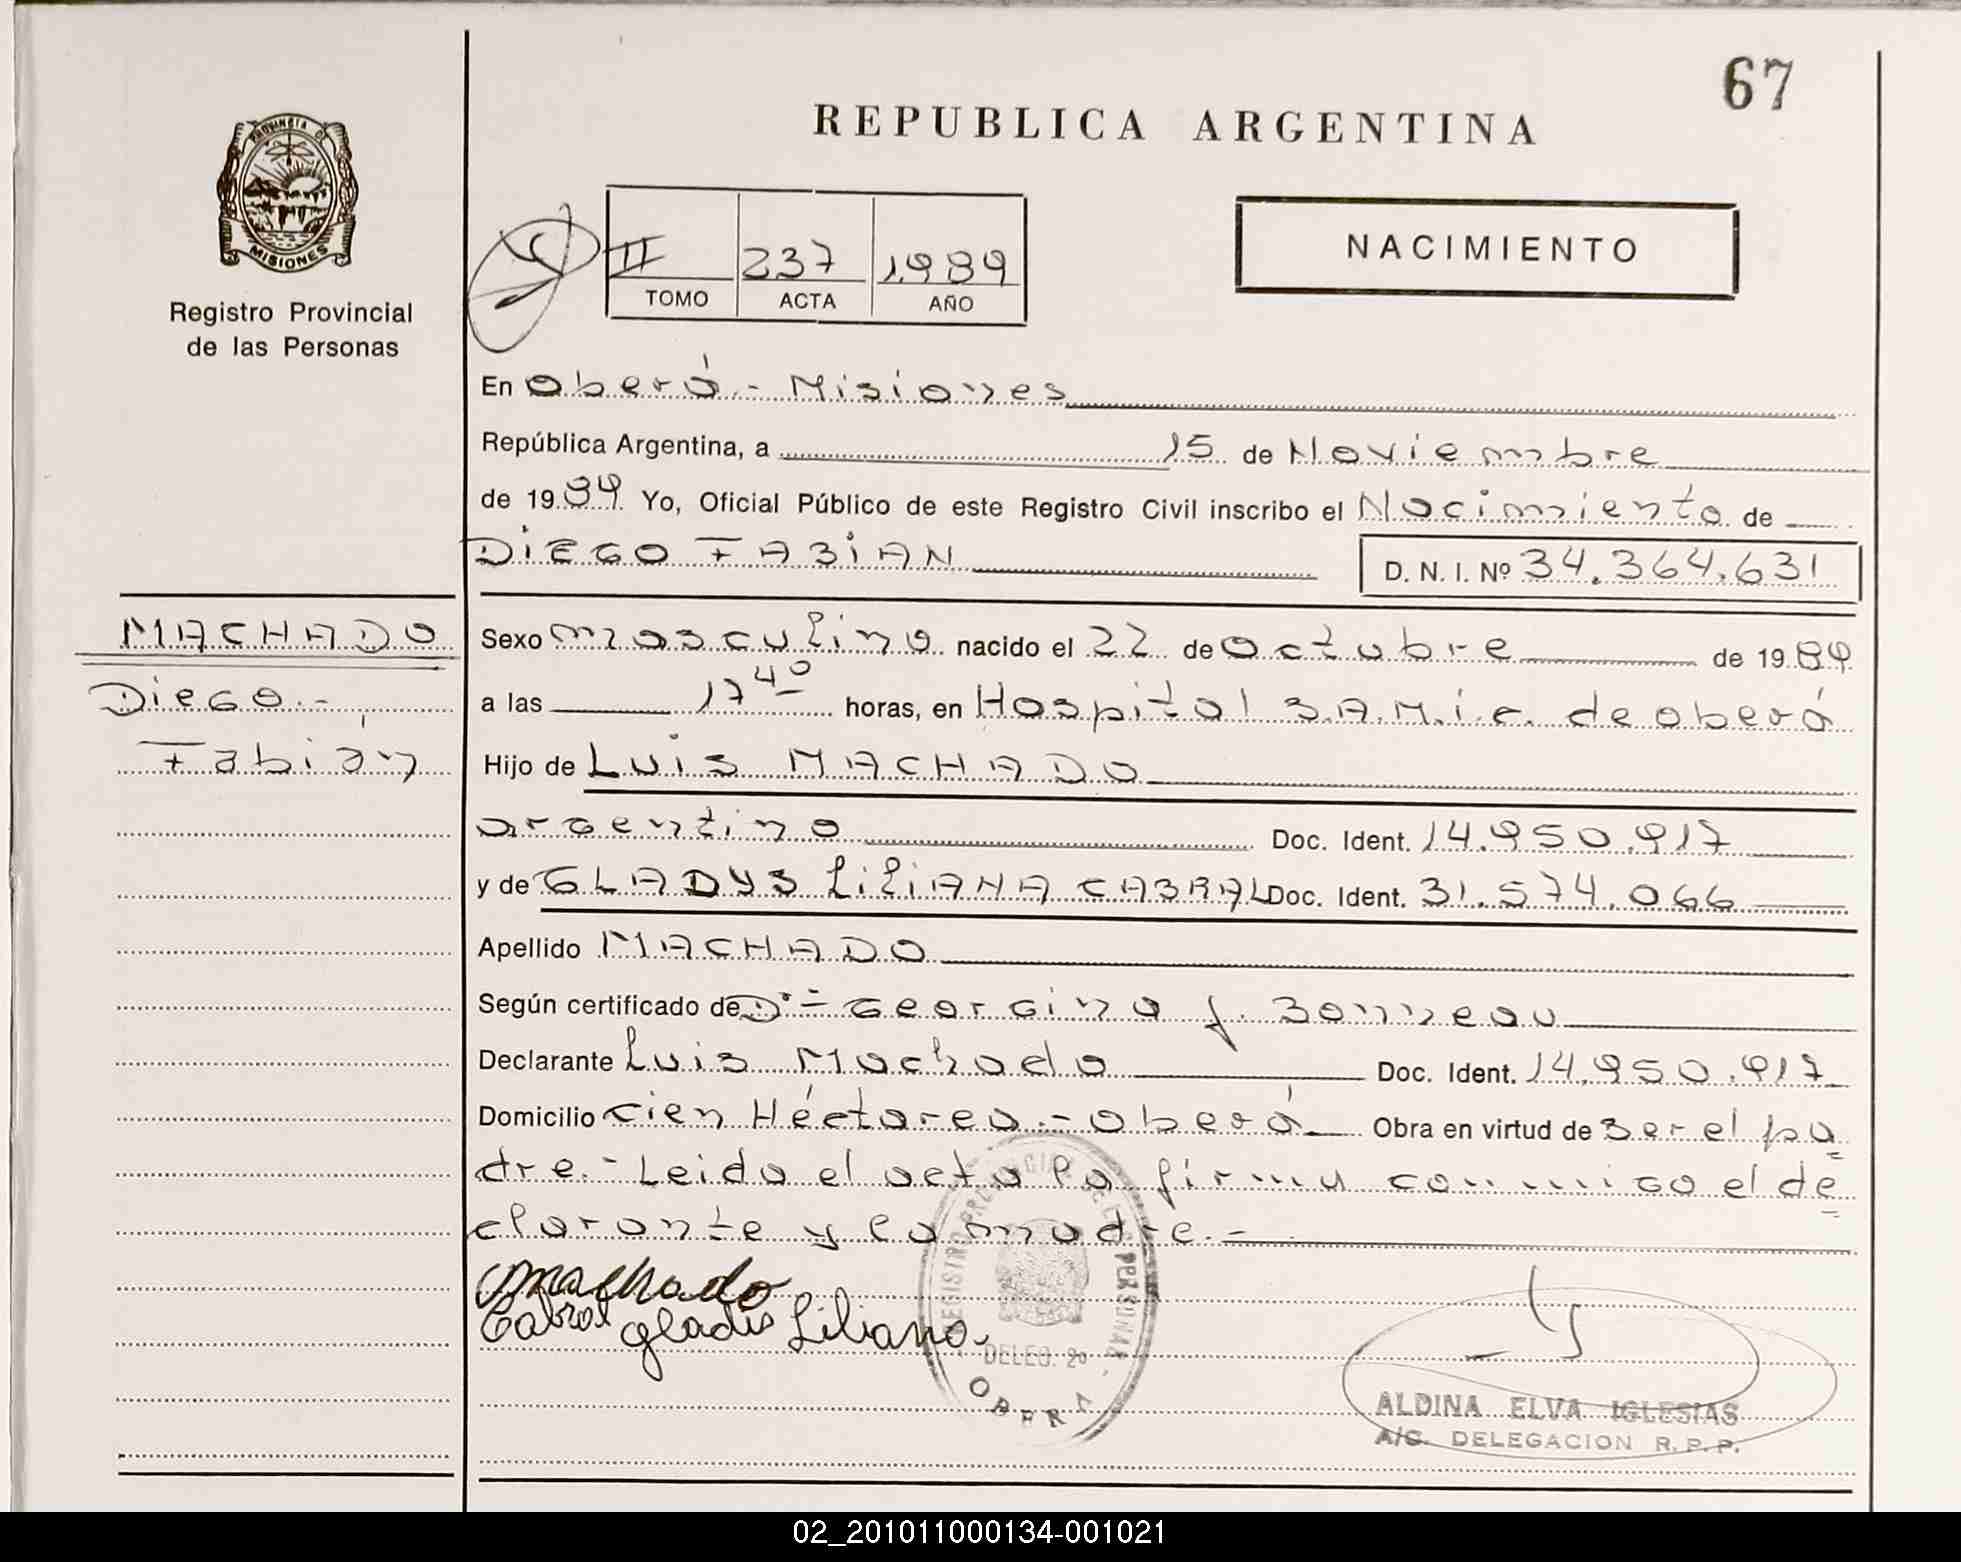 67
REPUBLICA ARGENTINA
PROVINCIA DE
MISIONES
Registro Provincial
de las Personas
II 237 1989
TOMO ACTA AÑO
NACIMIENTO
En Oberá.- Misiones
República Argentina, a 15 de Noviembre
de 1989 Yo, Oficial Público de este Registro Civil inscribo el Nacimiento de
DIEGO FABIAN D. N. I. Nº 34.364.631
MACHADO
Diego.-
Fabián
Sexo masculino nacido el 22 de Octubre de 1989
a las 17 40 horas, en Hospital S.A.M.i.c. de oberá
Hijo de LUIS MACHADO
argentino Doc. Ident. 14.950.917
y de GLADYS LiLiANA CABRAL Doc. Ident. 31.574.066
Apellido MACHADO
Según certificado de Georgina J. Bonneau
Declarante Luis Machado Doc. Ident. 14.950.917
Domicilio Cien Héctarea.- Oberá Obra en virtud de ser el pa
dre.- Leida el acta la firma conmigo el de
clarante y la madre.-
Machado
Cabral Gladis Liliana
REGISTRO PROVINCIAL DE LAS PERSONAS
DELEG. 2º
OBERA
ALDINA ELVA IGLESIAS
A/C. DELEGACION R.P.P.
02_201011000134-001021